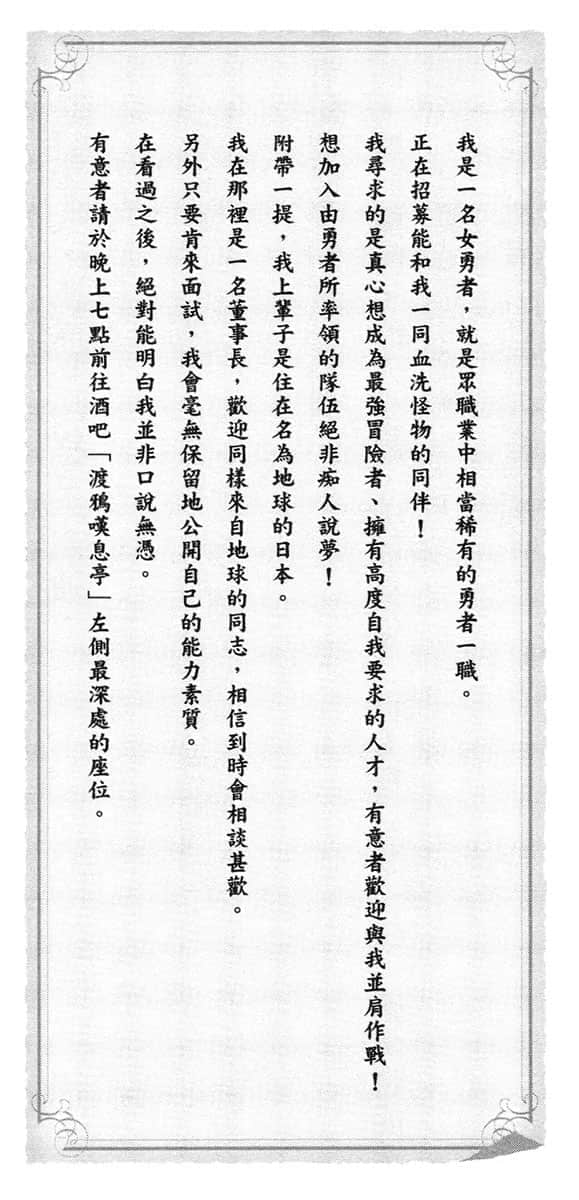 我是一名女勇者，就是眾職業中相當稀有的勇者職。
正在招募能和我一同血洗怪物的同伴！
我尋求的是真心想成為最強冒險者、擁有高度自我要求的人才，有意者歡迎與我並肩作戰！
想加入由勇者所率領的隊伍絕非痴人說夢！
附帶一提，我上輩子是住在名為地球的日本。
我在那裡是一名董事長，歡迎同樣來自地球的同志，相信到時會相談甚歡。
另外只要肯來面試，我會毫無保留地公開自己的能力素質。
在看過之後，絕對能明白我並非口說無憑。
有意者請於晚上七點前往酒吧「渡鴉嘆息亭」左側最深處的座位。